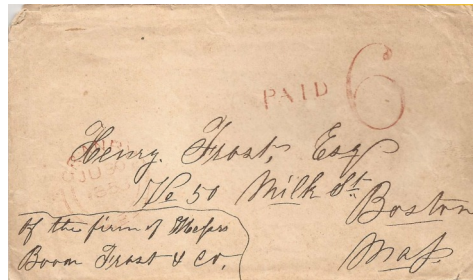 PAID 6
Henry. Frost, Esq
No 50 Milk St.
Boston
Mass.
of the firm of Messrs
Boom Frost & Co.